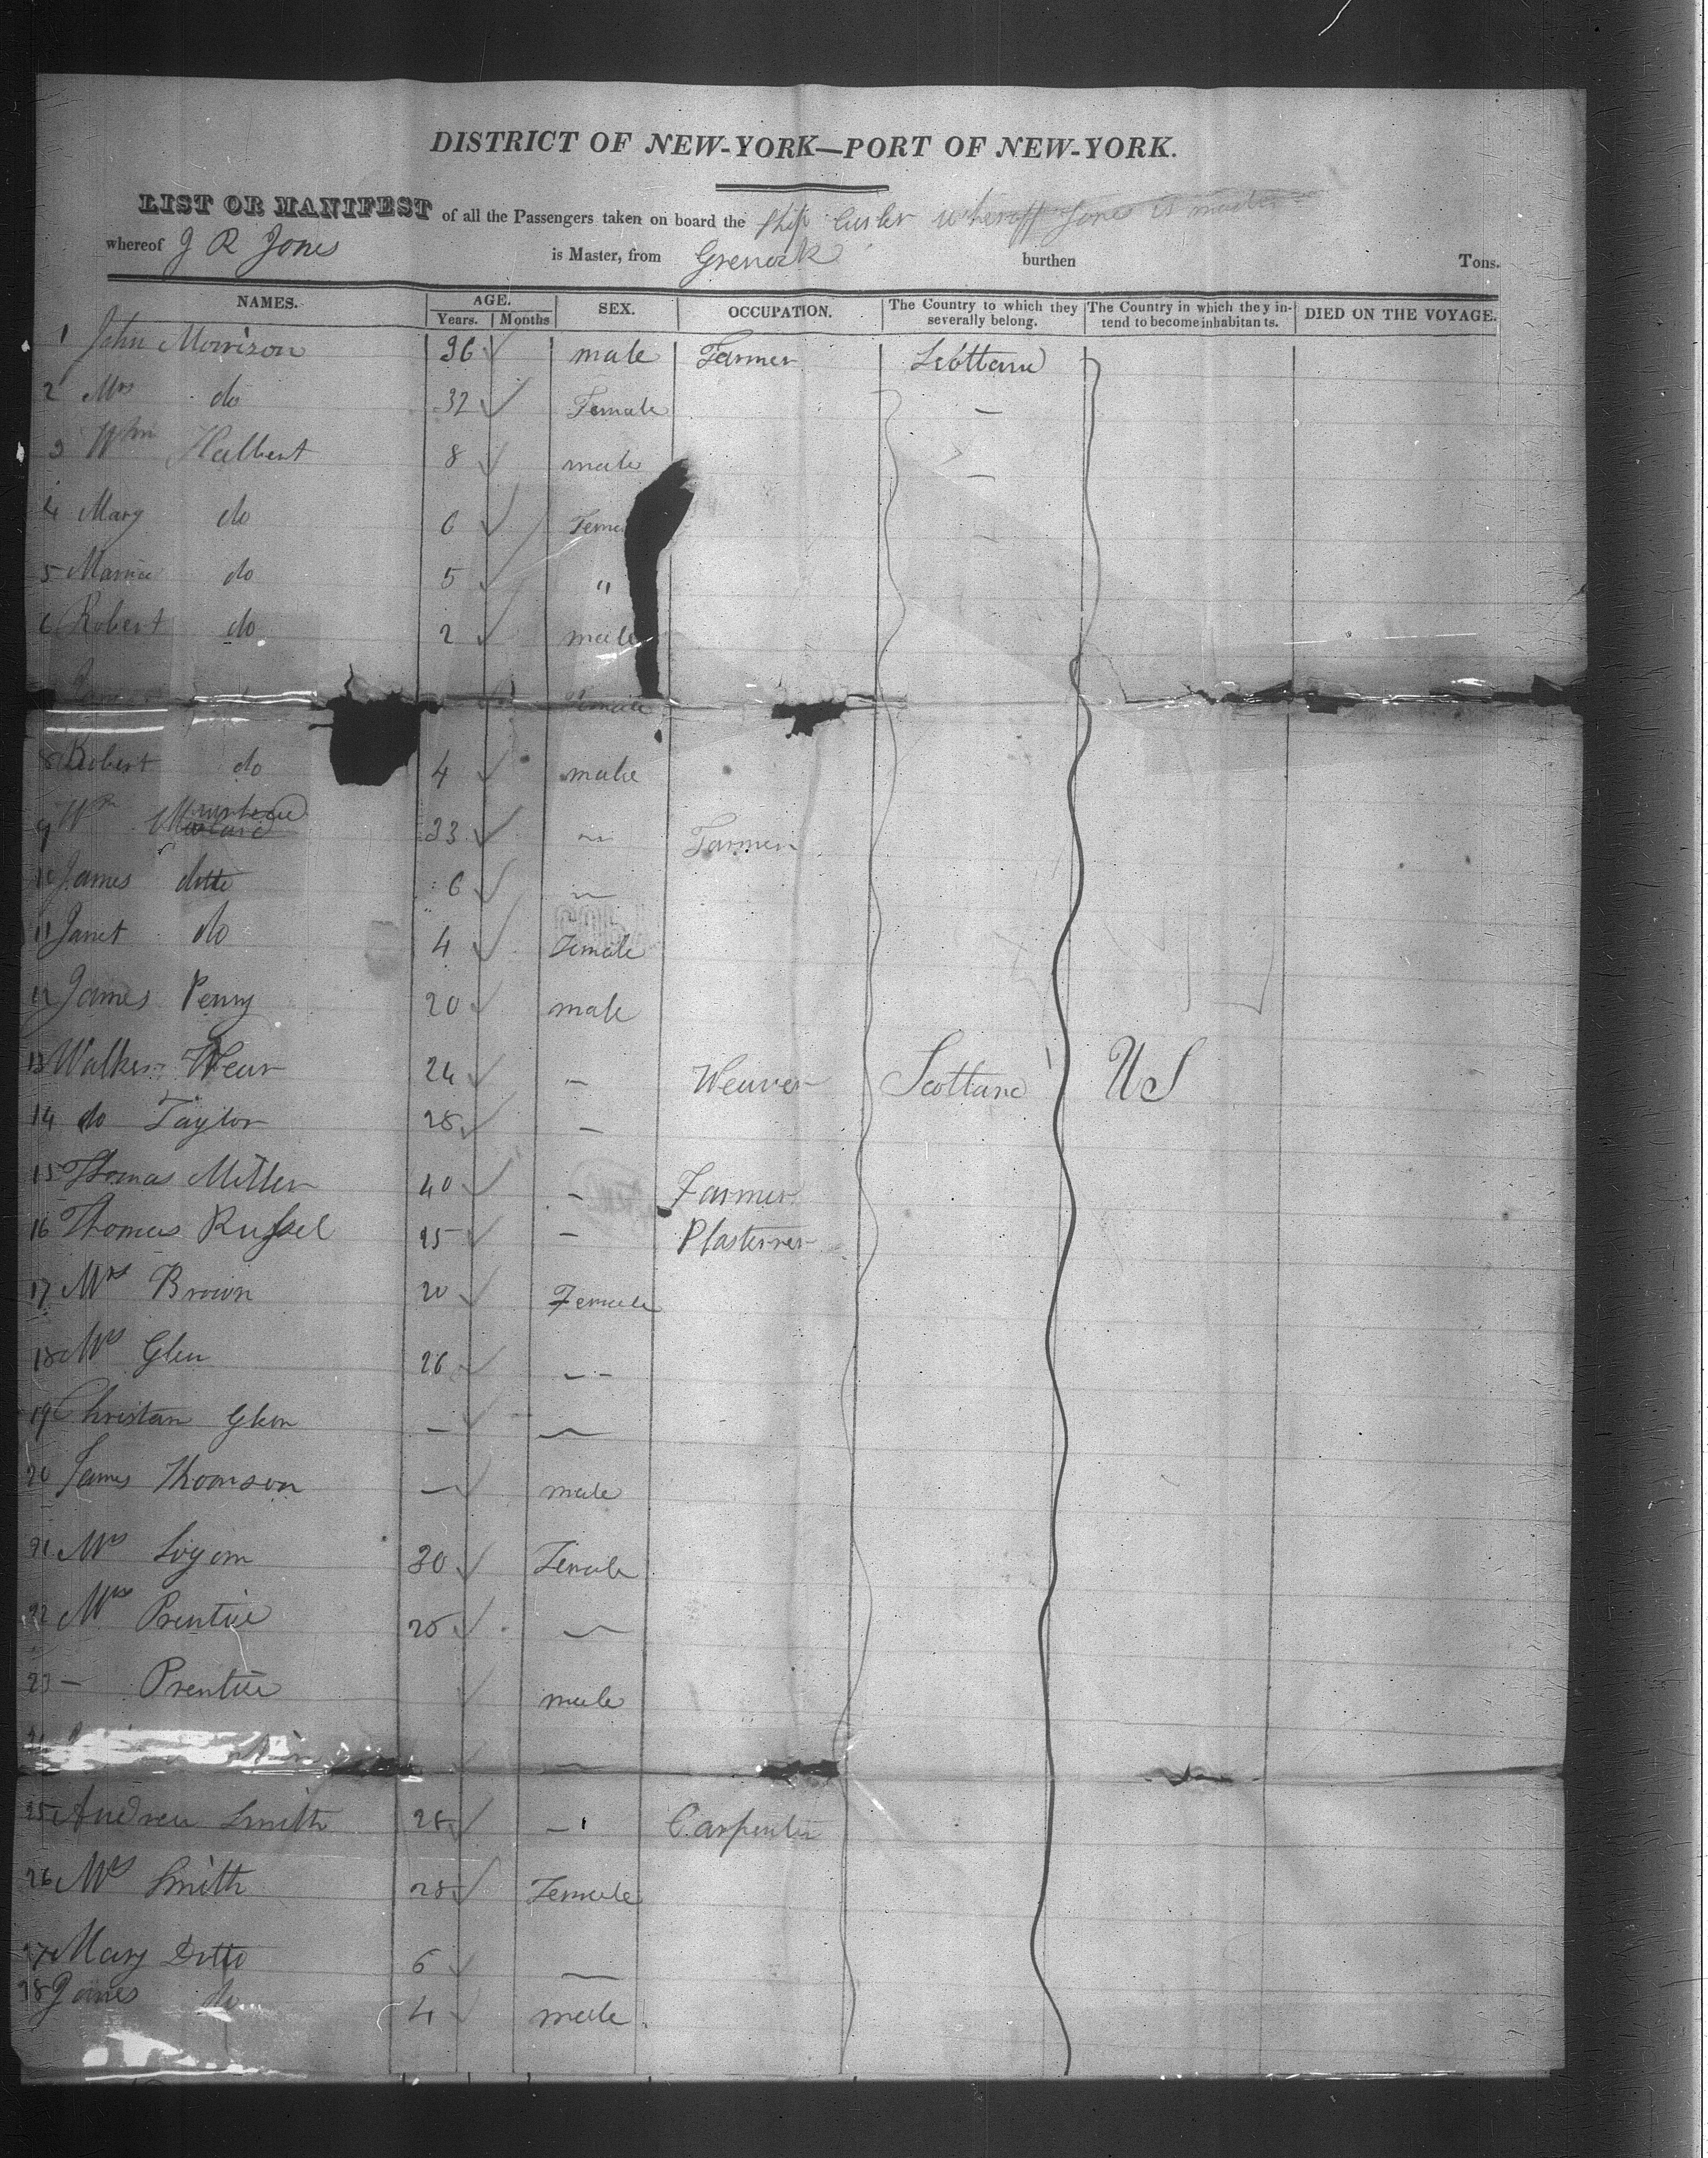 DISTRICT OF NEW-YORK—PORT OF NEW-YORK.
LIST OR MANIFEST of all the Passengers taken on board the Ship whereoff Jones is master
whereof J R Jones is Master, from Grenock burthen Tons.
NAMES. AGE. SEX. OCCUPATION. The Country to which they severally belong. The Country in which they intend to become inhabitants. DIED ON THE VOYAGE.
Years. Months
1 John Morrison 36 male Farmer Scottland
2 Mrs do 32 Female —
3 Wm Halbert 8 male —
4 Mary do 6 Fema —
5 do 5 "
6 Robert do 2 male
Female
8 Robert do 4 male
9 Wm 33 — Farmer
10 James ditto 6 —
11 Janet do 4 Female
12 James Penny 20 male
13 Walker Weir 24 — Weaver Scotland US
14 do Taylor 28 —
15 Thomas Miller 40 — Farmer
16 Thomas Russel 25 — Plasterer
17 Mrs Brown 20 Female
18 Mrs Glen 26 —
19 Christan Glen — —
20 James Thomson — male
21 Mrs 30 Female
22 Mrs Prentice 25 —
23 — Prentice male
—
25 Andrew Smith 28 — Carpenter
26 Mrs Smith 28 Female
27 Mary Ditto 6 —
28 James do 4 male